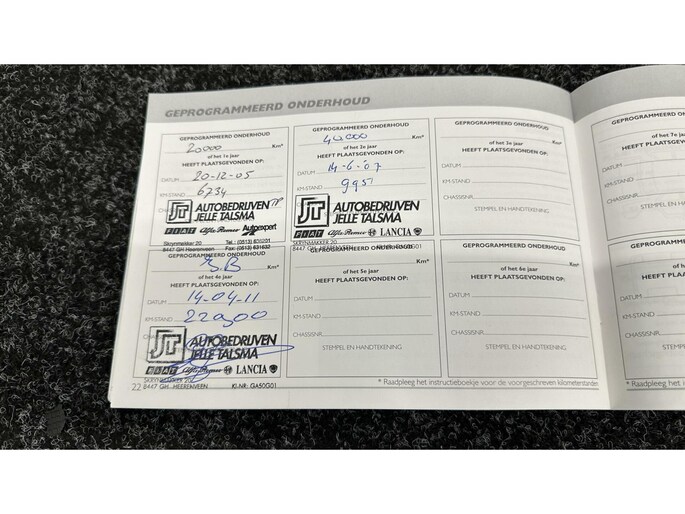 GEPROGRAMMEERD ONDERHOUD
GEPROGRAMMEERD ONDERHOUD
20000 Km*
of het 1e jaar
HEEFT PLAATSGEVONDEN OP:
DATUM 20-12-05
KM-STAND 6734
CHASSISNR.
JT AUTOBEDRIJVEN
JELLE TALSMA
FIAT Alfa Romeo Autoexpert
Skrynmakker 20 Tel.: (0513)
8447 GH Heerenveen Fax: (0513) 631632
GEPROGRAMMEERD ONDERHOUD
40.000 Km*
of het 2e jaar
HEEFT PLAATSGEVONDEN OP:
DATUM 14-6-07
KM-STAND
JT AUTOBEDRIJVEN
JELLE TALSMA
FIAT Alfa Romeo LANCIA
SKRYNMAKKER 20
GEPROGRAMMEERD ONDERHOUD
Km*
of het 3e jaar
HEEFT PLAATSGEVONDEN OP:
DATUM
KM-STAND
CHASSISNR.
STEMPEL EN HANDTEKENING
of het 7e jaar
HEEFT
DATUM
KM-STAND
CHASSISNR.
GEPROGRAMMEERD ONDERHOUD
Km*
of het 4e jaar
HEEFT PLAATSGEVONDEN OP:
DATUM 14-04-11
KM-STAND 22900
CHASSISNR.
JT AUTOBEDRIJVEN
JELLE TALSMA
FIAT Alfa Romeo LANCIA
SKRYNMAKKER 20
8447 GH HEERENVEEN KI-NR: GA50G01
GEPROGRAMMEERD ONDERHOUD
Km*
of het 5e jaar
HEEFT PLAATSGEVONDEN OP:
DATUM
KM-STAND
CHASSISNR.
STEMPEL EN HANDTEKENING
GEPROGRAMMEERD ONDERHOUD
Km*
of het 6e jaar
HEEFT PLAATSGEVONDEN OP:
DATUM
KM-STAND
CHASSISNR.
STEMPEL EN HANDTEKENING
DATUM
KM-STAND
CHASSISNR.
22
* Raadpleeg het instructieboekje voor de voorgeschreven kilometerstanden